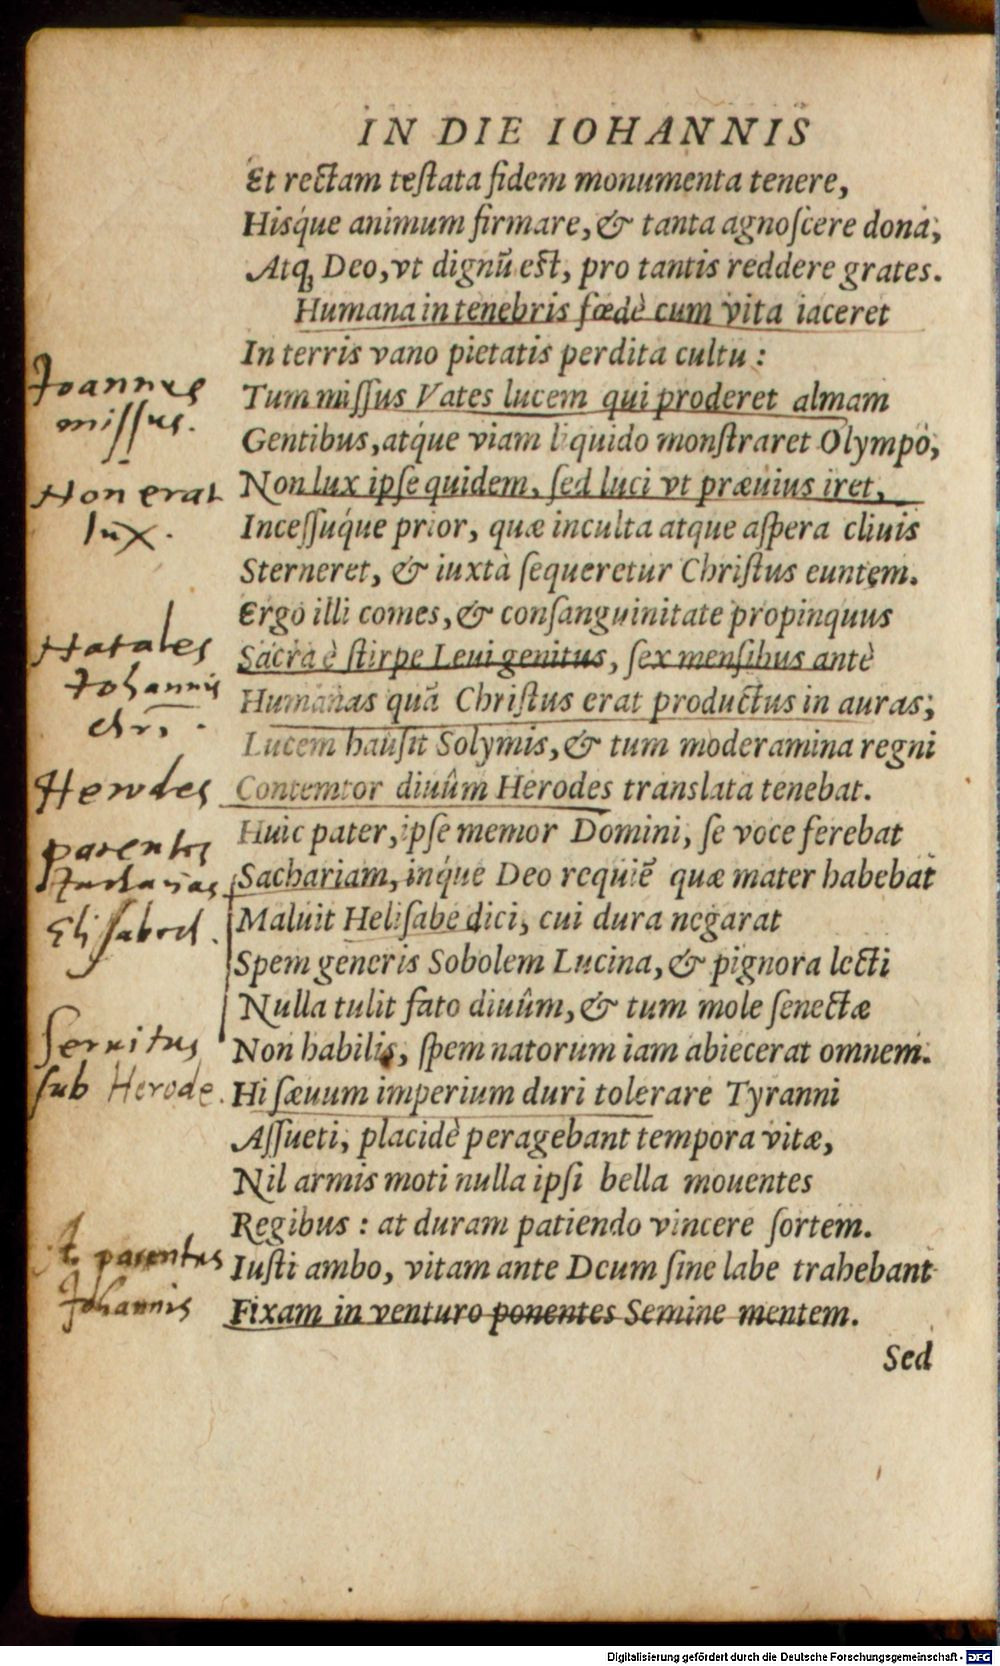 IN DIE IOHANNIS
Et rectam teſtata fidem monumenta tenere,
Hisq́ue animum firmare, & tanta agnoſcere dona;
Atq; Deo, vt dignũ eſt, pro tantis reddere grates.
Humana in tenebris fœdè cum vita iaceret
In terris vano pietatis perdita cultu :
Joannes
Tum miſſus Vates lucem qui proderet almam
miſſus.
Gentibus, atq́ue viam liquido monſtraret Olympo,
Non erat
Non lux ipſe quidem, ſed luci vt præuius iret,
lux.
Inceſſuq́ue prior, quæ inculta atque aſpera cliuis
Sterneret, & iuxtà ſequeretur Chriſtus euntem.
Ergo illi comes, & conſanguinitate propinquus
Natales
Sacra è ſtirpe Leui genitus, ſex menſibus antè
Johannis
Humanas quã Chriſtus erat productus in auras;
chri.
Lucem hauſit Solymis, & tum moderamina regni
Herodes
Contemtor diuûm Herodes translata tenebat.
Huic pater, ipſe memor Domini, ſe voce ferebat
parentes
Sachariam, inq́ue Deo requiẽ quæ mater habebat
Zacharias
Maluit Heliſabe dici, cui dura negarat
Eliſabeth.
Spem generis Sobolem Lucina, & pignora lecti
Nulla tulit fato diuûm, & tum mole ſenectæ
Seruitus
Non habilis, ſpem natorum iam abiecerat omnem.
ſub Herode.
Hi ſæuum imperium duri tolerare Tyranni
Aſſueti, placidè peragebant tempora vitæ,
Nil armis moti nulla ipſi bella mouentes
Regibus : at duram patiendo vincere ſortem.
parentes
Iuſti ambo, vitam ante Deum ſine labe trahebant
Johannis
Fixam in venturo ponentes Semine mentem.
Sed
Digitalisierung gefördert durch die Deutsche Forschungsgemeinschaft - DFG